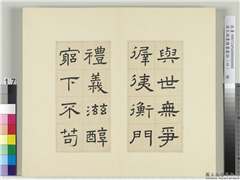 與世無爭
徲德衡門
禮義滋醇
窮下不苟